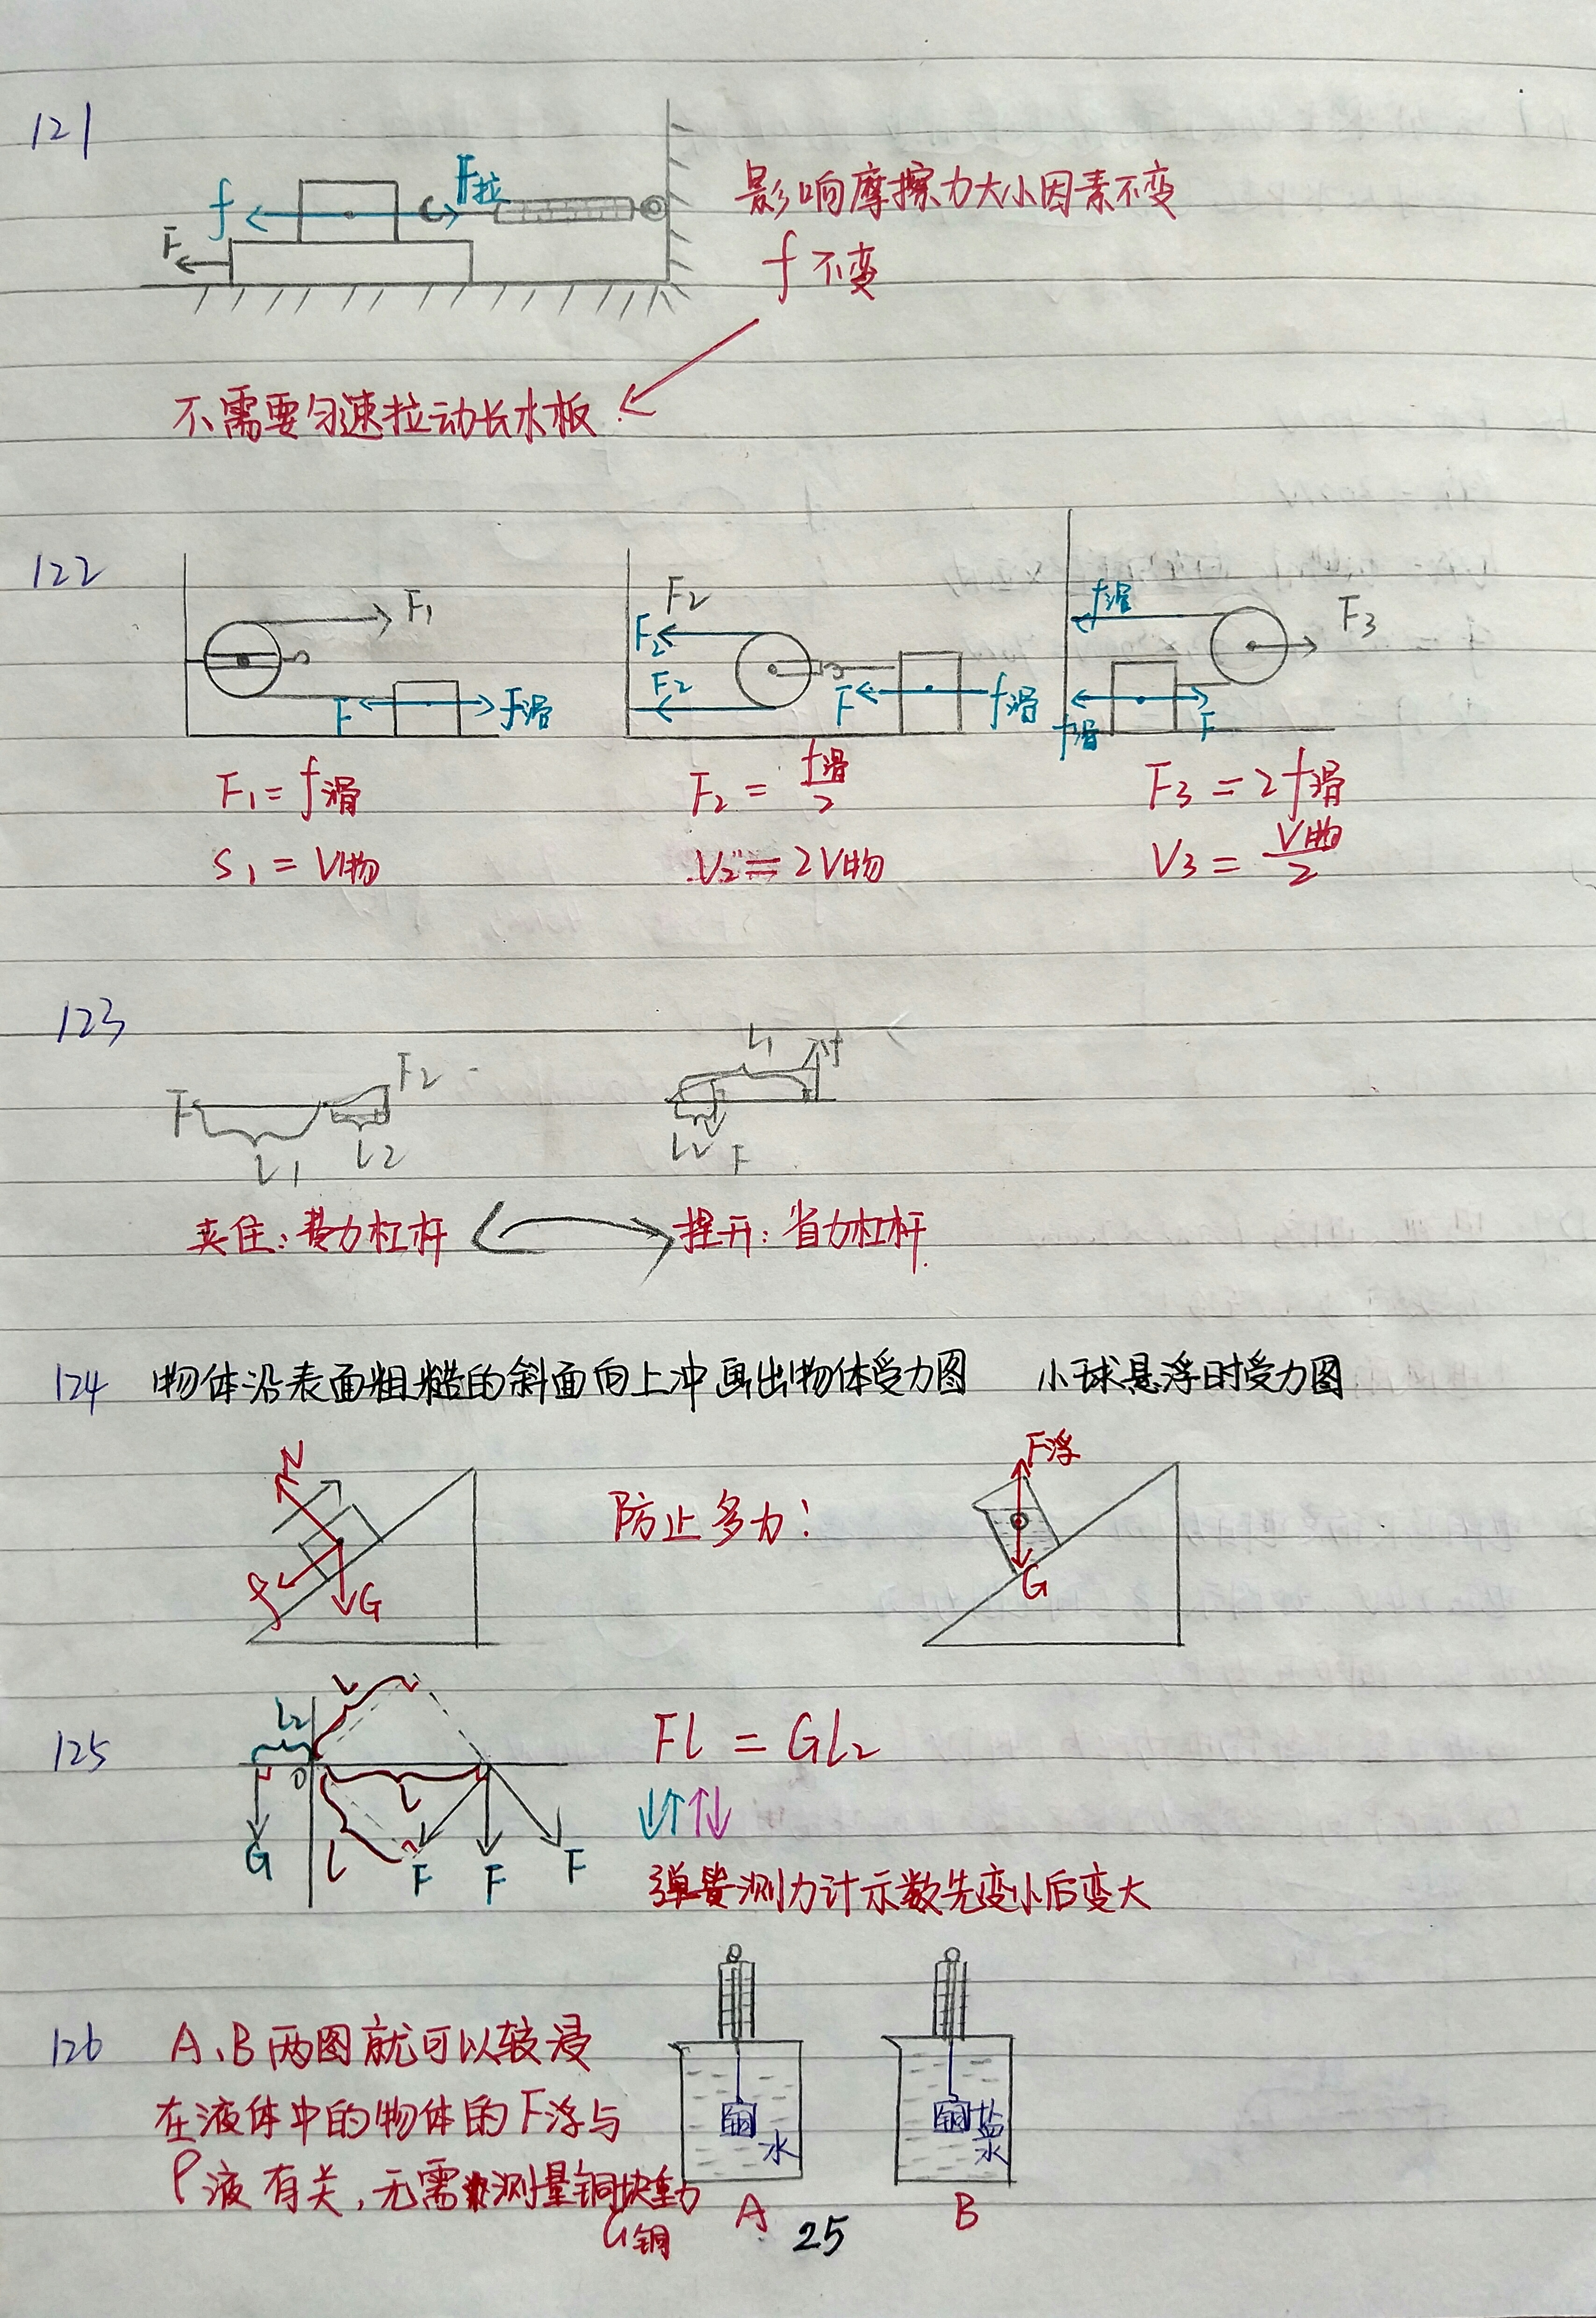 121
f F拉
F
影响摩擦力大小因素不变
f 不变
不需要匀速拉动长木板
122
F1 F f滑
F2 F2 F2 F f滑
f滑 F3 f滑 F
F1 = f滑
F2 = f滑/2
F3 = 2f滑
S1 = V物
V2 = 2V物
V3 = V物/2
123
F F2 L1 L2
L1 f L2 F
夹住:费力杠杆
捏开:省力杠杆
124 物体沿表面粗糙的斜面向上冲画出物体受力图 小球悬浮时受力图
N f G
防止多力:
F浮 G
125
L L2 O L L G F F F
FL = GL2
↓↑↑↓
弹簧测力计示数先变小后变大
126
A、B两图就可以较浸
在液体中的物体的F浮与
ρ液有关,无需测量铜块重力
G铜
铜 水
铜 盐水
A B
25